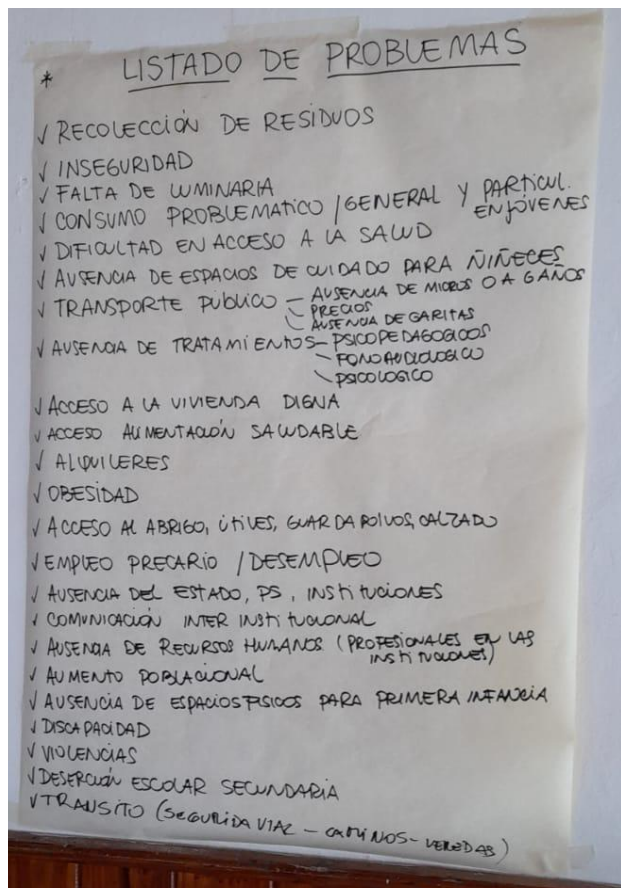 * LISTADO DE PROBLEMAS
✓ RECOLECCIÓN DE RESIDUOS
✓ INSEGURIDAD
✓ FALTA DE LUMINARIA
✓ CONSUMO PROBLEMATICO / GENERAL Y PARTICUL.
EN JÓVENES
✓ DIFICULTAD EN ACCESO A LA SALUD
✓ AUSENCIA DE ESPACIOS DE CUIDADO PARA ÑIÑECES
0 A 6 AÑOS
✓ TRANSPORTE PÚBLICO – AUSENCIA DE MICROS
– PRECIOS
– AUSENCIA DE GARITAS
✓ AUSENCIA DE TRATAMIENTOS – PSICOPEDAGOGICOS
– FONOAUDIOLOGICO
– PSICOLOGICO
✓ ACCESO A LA VIVIENDA DIGNA
✓ ACCESO ALIMENTACIÓN SALUDABLE
✓ ALQUILERES
✓ OBESIDAD
✓ ACCESO AL ABRIGO, ÚTILES, GUARDAPOLVOS, CALZADO
✓ EMPLEO PRECARIO / DESEMPLEO
✓ AUSENCIA DEL ESTADO, PS, INSTITUCIONES
✓ COMUNICACIÓN INTER INSTITUCIONAL
✓ AUSENCIA DE RECURSOS HUMANOS (PROFESIONALES EN LAS
INSTITUCIONES)
✓ AUMENTO POBLACIONAL
✓ AUSENCIA DE ESPACIOS FISICOS PARA PRIMERA INFANCIA
✓ DISCAPACIDAD
✓ VIOLENCIAS
✓ DESERCIÓN ESCOLAR SECUNDARIA
✓ TRANSITO (SEGURIDA VIAL – CAMINOS – VEREDAS)